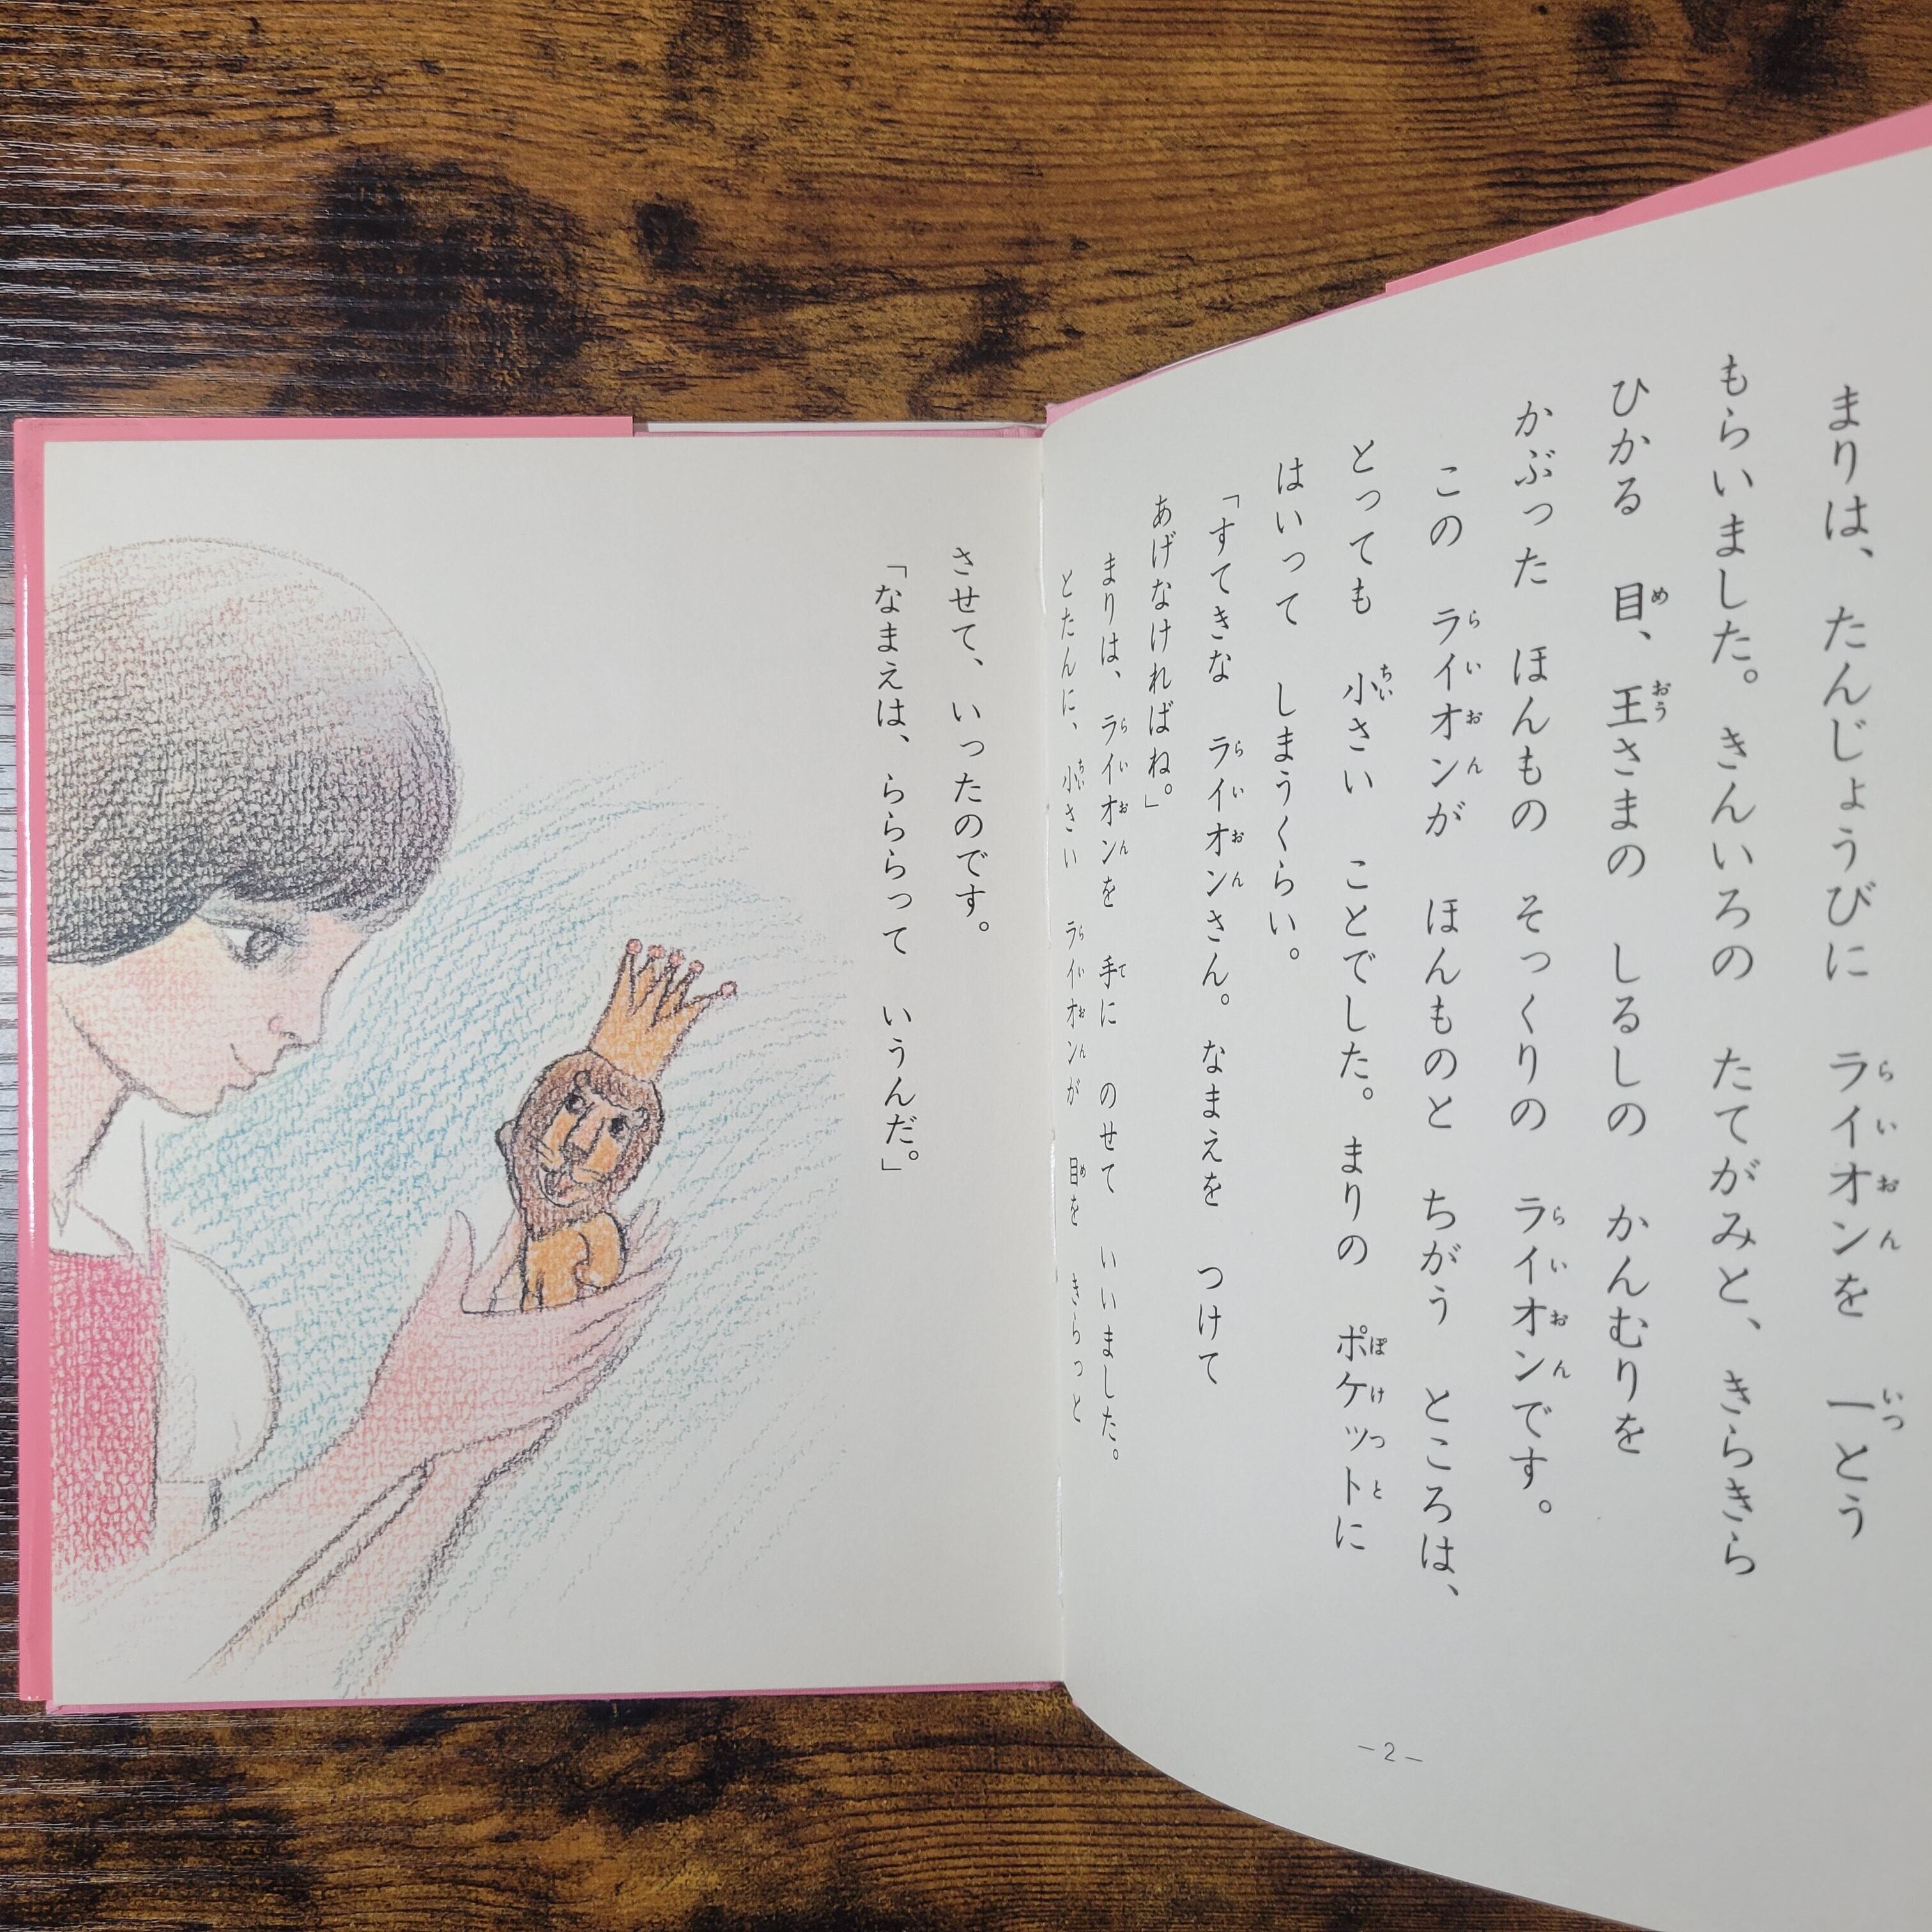 まりは、たんじょうびに ライオンを 一とう
もらいました。きんいろの たてがみと、きらきら
ひかる 目、王さまの しるしの かんむりを
かぶった ほんもの そっくりの ライオンです。
この ライオンが ほんものと ちがう ところは、
とっても 小さい ことでした。まりの ポケットに
はいって しまうくらい。
「すてきな ライオンさん。なまえを つけて
あげなければね。」
まりは、ライオンを 手に のせて いいました。
とたんに、小さい ライオンが 目を きらっと
させて、いったのです。
「なまえは、らららって いうんだ。」
－2－